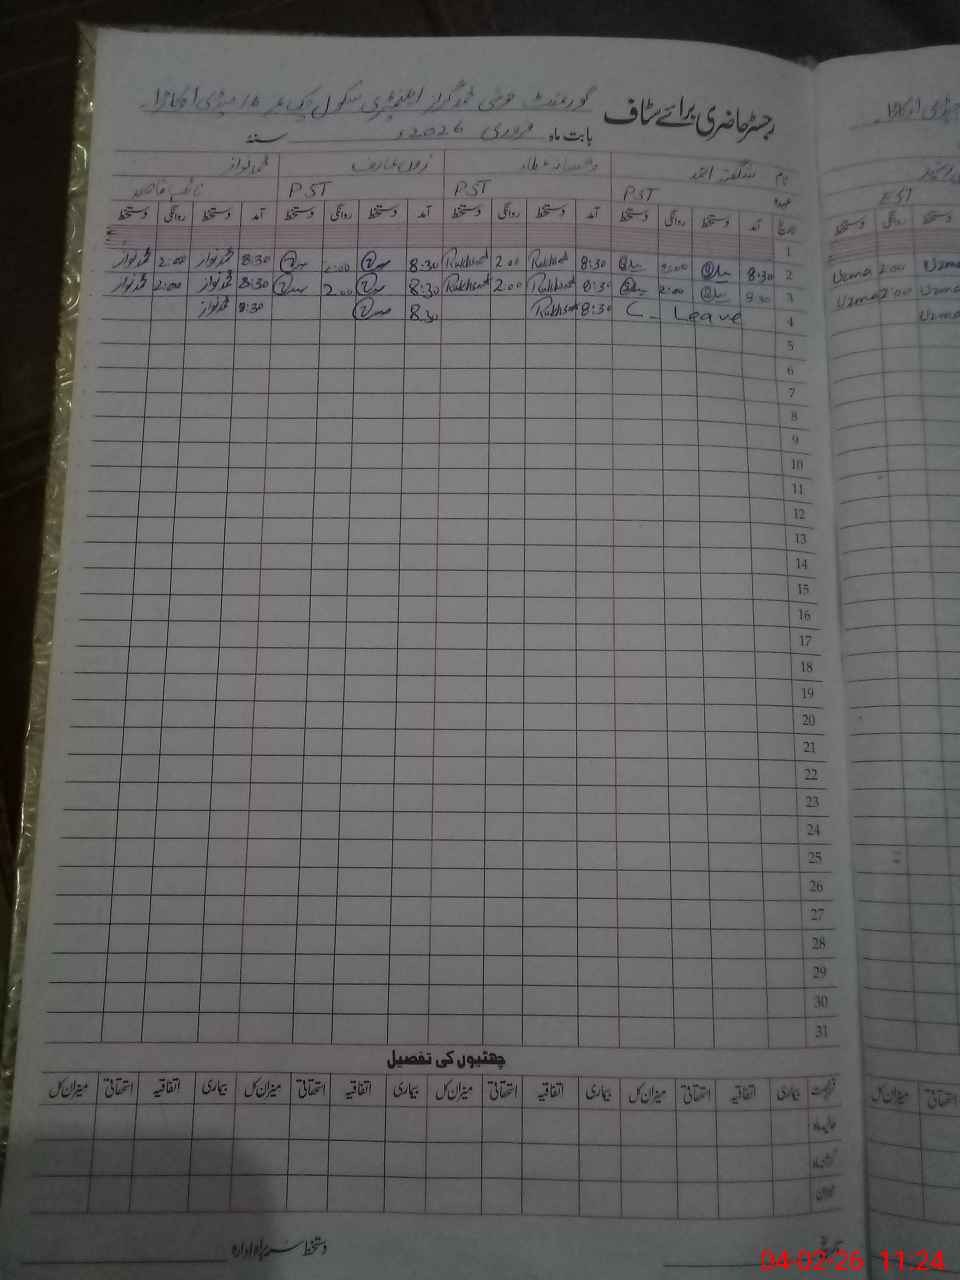 رجسٹر حاضری برائے سٹاف
گورنمنٹ گرلز ایلیمنٹری سکول چک نمبر
بابت ماہ فروری 2026ء سنہ
نام شگفتہ
محمد نواز
عہدہ PST PST PST نائب قاصد
EST
تاریخ آمد دستخط روانگی دستخط آمد دستخط روانگی دستخط آمد دستخط روانگی دستخط آمد دستخط روانگی دستخط
دستخط روانگی دستخط
1
2 8:30 2:00 8:30 Rukhsana 2:00 Rukhsana 8:30 2:00 8:30 محمد نواز 2:00 محمد نواز
Uzma 2:00 Uzma
3 8:30 2:00 8:30 Rukhsana 2:00 Rukhsana 8:30 2:00 8:30 محمد نواز 2:00 محمد نواز
Uzma 2:00 Uzma
4 C- Leave 8:30 Rukhsana 8:30 8:30 محمد نواز
Uzma
5
6
7
8
9
10
11
12
13
14
15
16
17
18
19
20
21
22
23
24
25
26
27
28
29
30
31
چھٹیوں کی تفصیل
بیماری اتفاقیہ استحقاقی میزان کل بیماری اتفاقیہ استحقاقی میزان کل بیماری اتفاقیہ استحقاقی میزان کل بیماری اتفاقیہ استحقاقی میزان کل
استحقاقی میزان کل
دستخط سربراہ ادارہ
04-02-26 11:24